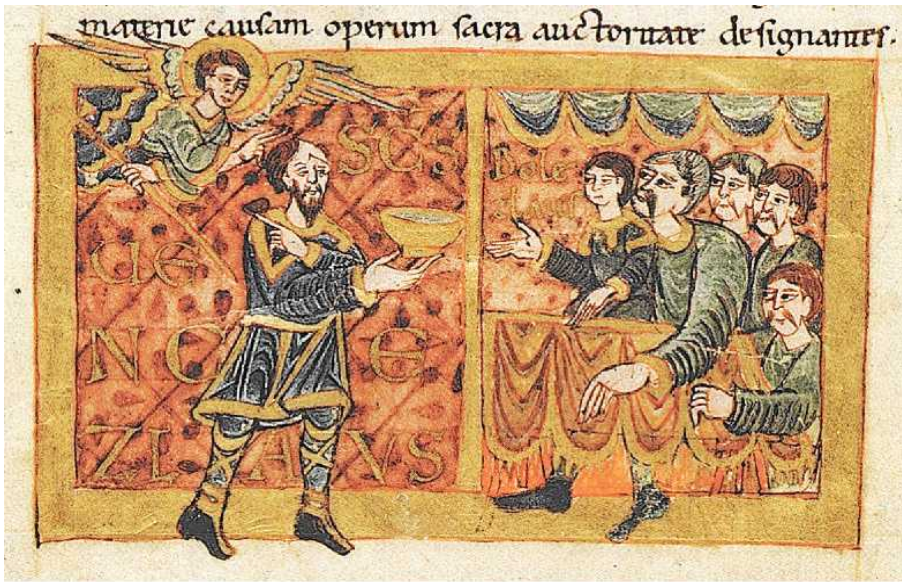 materie causam operum sacra auctoritate designantes.
SCS
Bole
slaus
UE
NCE
ZLAVS